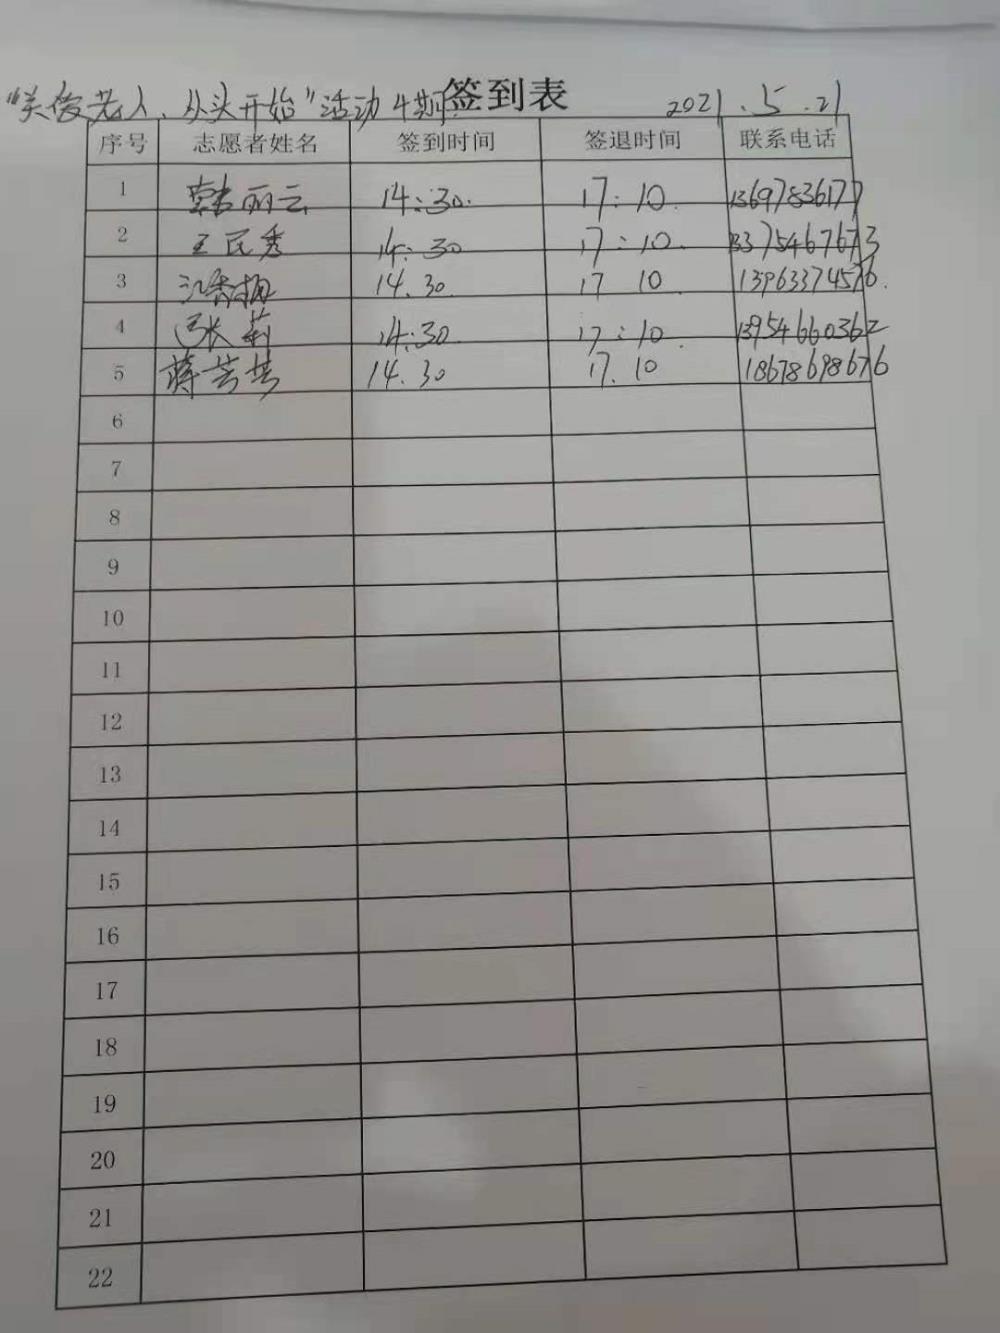 "关爱老人、从头开始"活动4期 签到表 2021.5.21
序号 志愿者姓名 签到时间 签退时间 联系电话
1 韩丽云 14:30. 17:10. 13697836177
2 王民秀 14:30 17:10. 13375467673
3 14.30. 17 10. 13963374576.
4 14:30. 17:10. 13954660362
5 14.30 17.10 18678698676
6
7
8
9
10
11
12
13
14
15
16
17
18
19
20
21
22